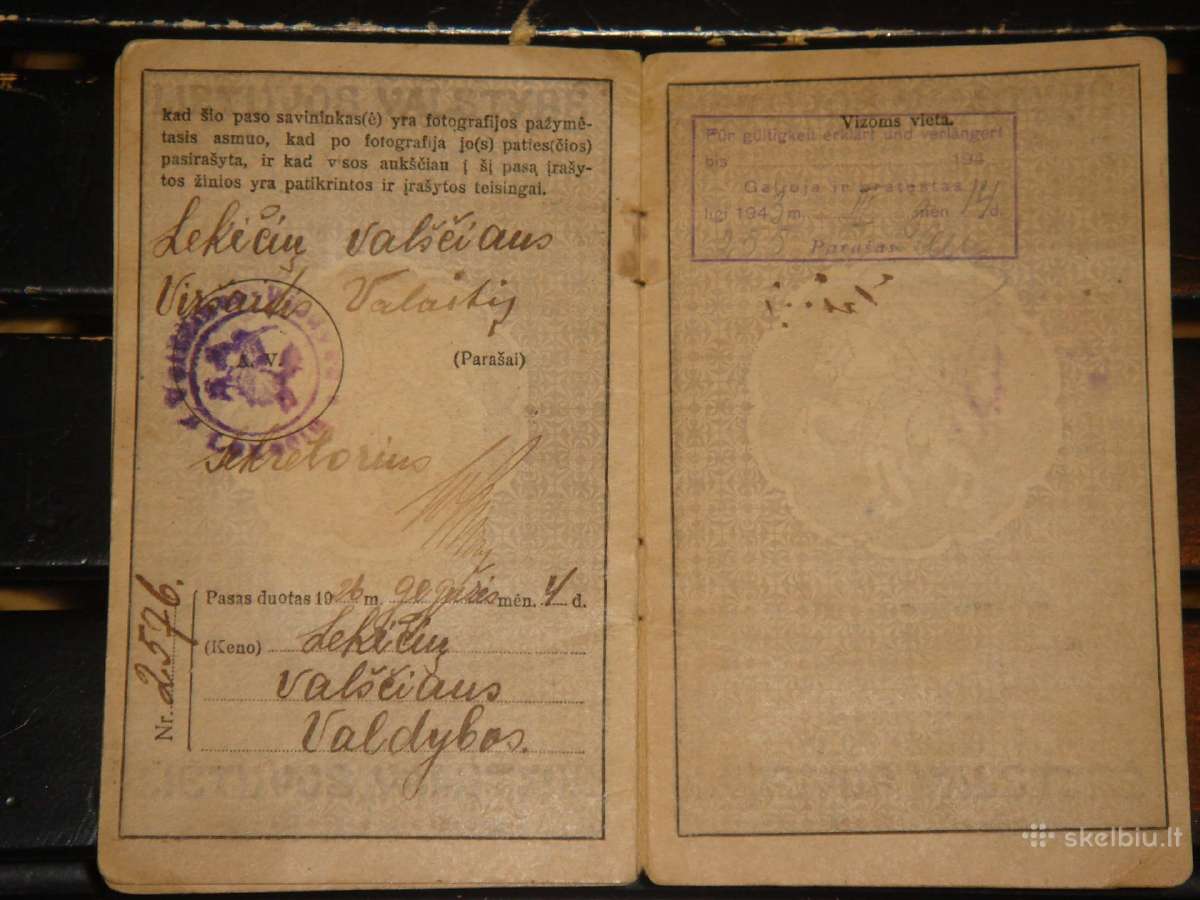 kad šio paso savininkas(ė) yra fotografijos pažymė-
tasis asmuo, kad po fotografija jo(s) paties(čios)
pasirašyta, ir kad visos aukščiau į šį pasą įrašy-
tos žinios yra patikrintos ir įrašytos teisingai.
Lekėčių valščiaus
Viršaitis Valaitis
A. V.
(Parašai)
Sekretorius
Nr. 2576.
Pasas duotas 1926 m. gegužės mėn. 4 d.
(Keno) Lekėčių
valščiaus
Valdybos.
Vizoms vieta.
Für gültigkeit erklärt und verlängert
bis 194
Galioja ir pratęstas
ligi 1943 m. mėn 14 d.
255 Parašas
skelbiu.lt